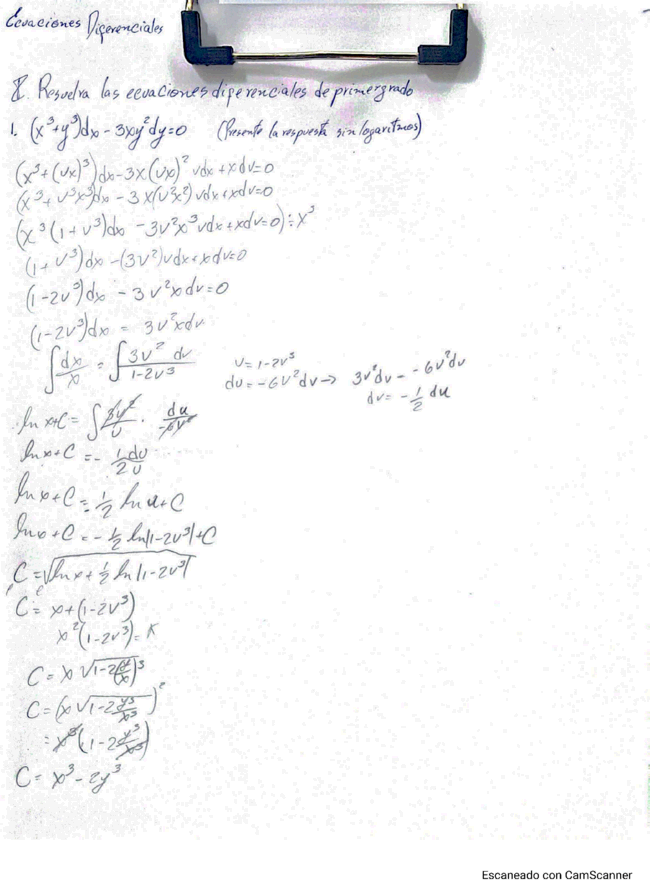 Ecuaciones Diferenciales
I. Resuelva las ecuaciones diferenciales de primer grado
1. (x³+y³)dx - 3xy²dy=0 (Presente la respuesta sin logaritmos)
(x³+(vx)³)dx-3x(vx)² vdx+xdv=0
(x³+v³x³)dx - 3x(v²x²)vdx+xdv=0
(x³(1+v³)dx - 3v²x³vdx+xdv=0)÷x³
(1+v³)dx-(3v²)vdx+xdv=0
(1-2v³)dx - 3v²xdv=0
(1-2v³)dx = 3v²xdv
∫dx/x = ∫3v² dv/1-2v³ v=1-2v³
du=-6v²dv→ 3v²dv= -6v²dv
dv= -1/2 du
ln x+C= ∫3v²/u · du/-6v²
ln x+C = - 1du/2u
ln x+C = 1/2 ln u+C
ln x+C = -1/2 ln|1-2v³|+C
C=√ln x+1/2 ln|1-2v³|
C= x+(1-2v³)
x²(1-2v³)=K
C= x√1-2(y/x)³
C=(x√1-2y³/x³)²
=x³(1-2y³/x³)
C= x³-2y³
Escaneado con CamScanner